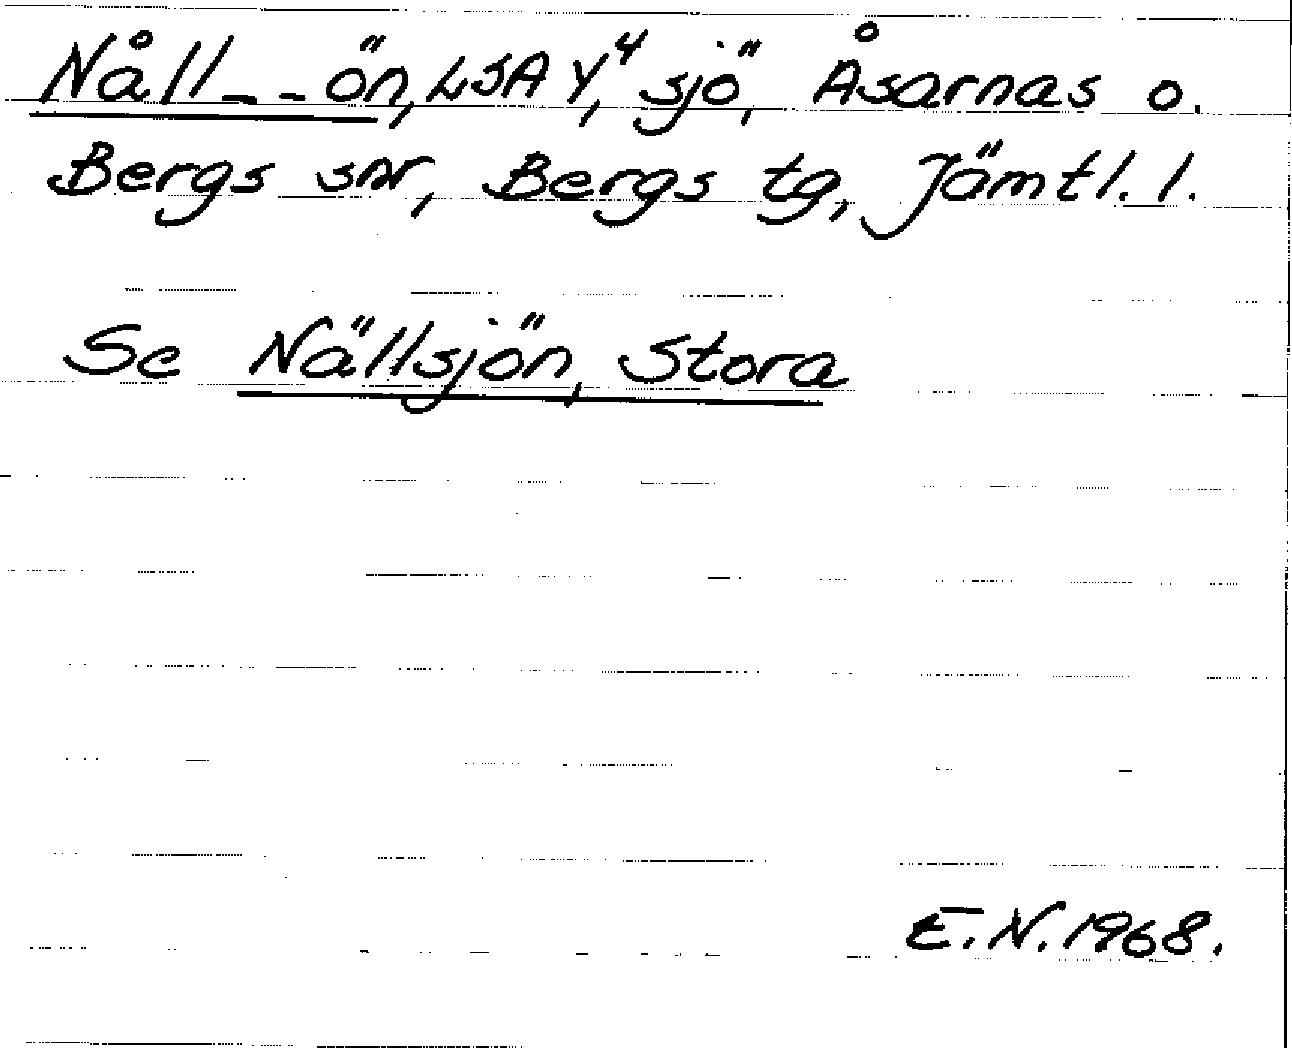 Nåll__ön, LSA Y4, sjö, Åsarnas o.
Bergs snr, Bergs tg, Jämtl. l.
Se Nällsjön, Stora
E.N. 1968.